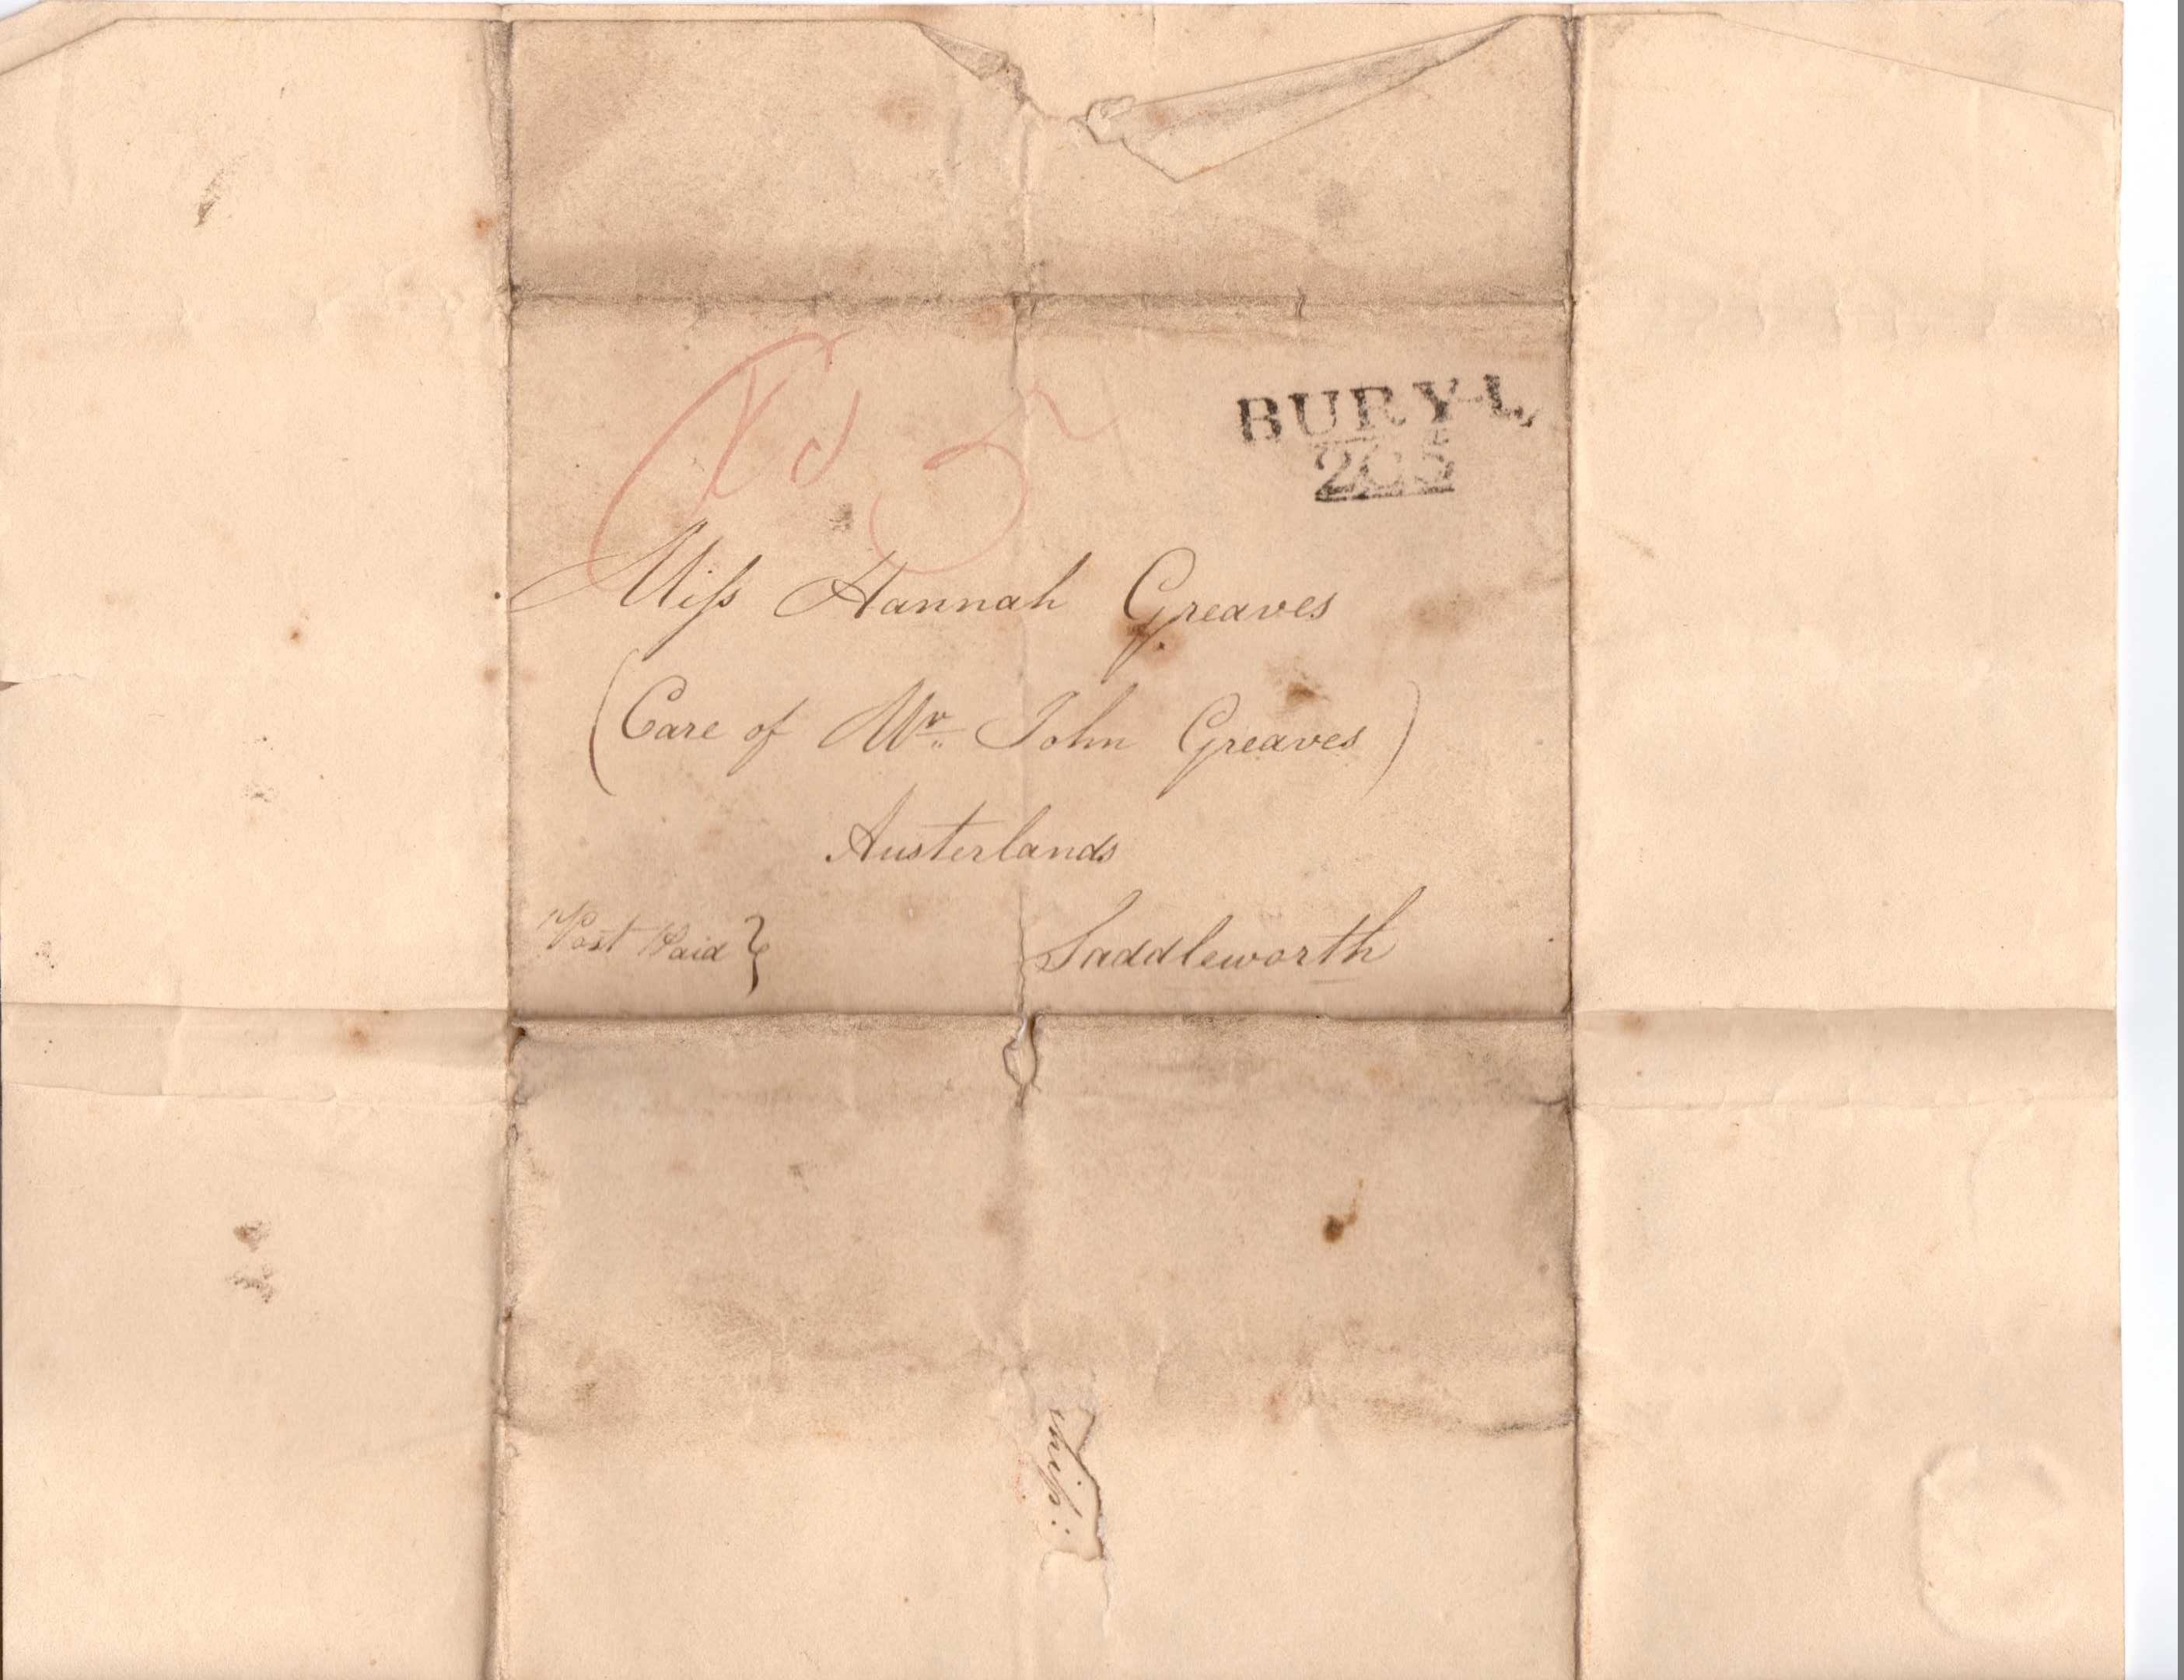 Pd 5
BURY-L.
205
Miſs Hannah Greaves
(Care of Mr. John Greaves)
Austerlands
Post Paid }
Saddleworth